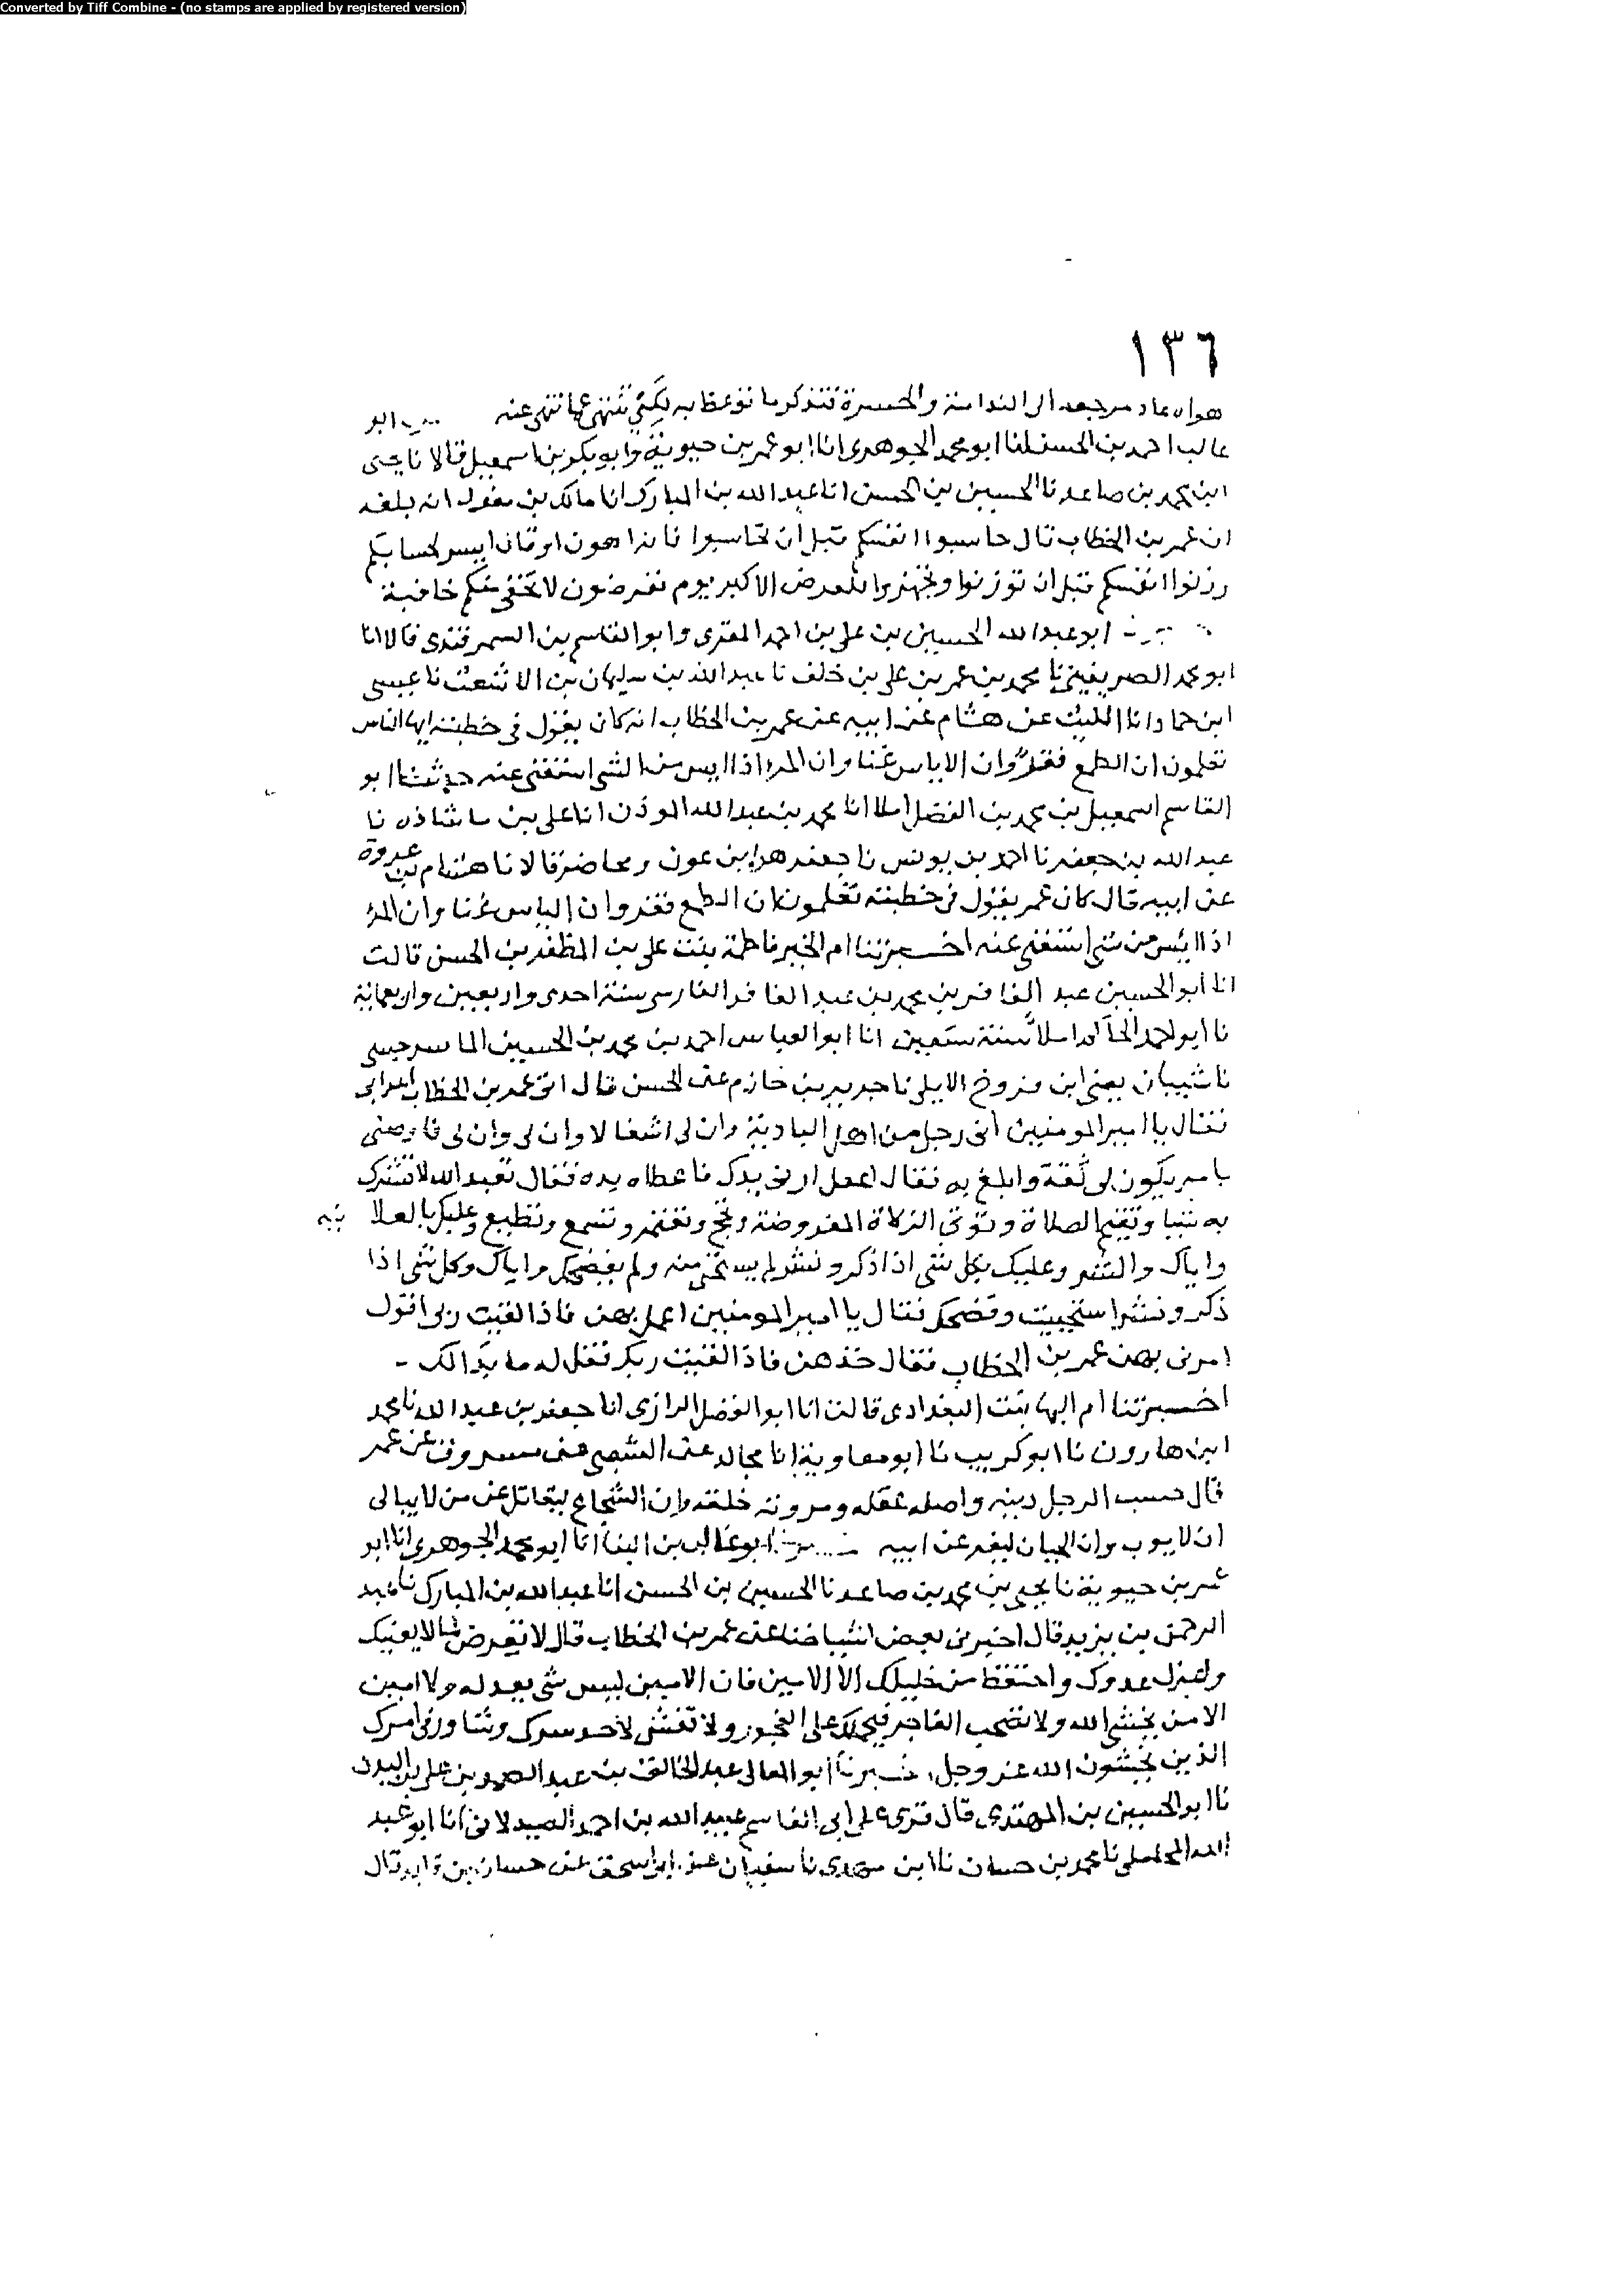 Converted by Tiff Combine - (no stamps are applied by registered version)
١٣٦
هواه عاد مرجعه الى الندامة والحسرة فتذكر ما توعظ به لكي تنتهي عما تنهى عنه ابو
غالب احمد بن الحسن انا ابو محمد الجوهري انا ابو عمر بن حيوية وابو بكر بن اسمعيل قالا نا يحيى
ابن محمد بن صاعد نا الحسين بن الحسن انا عبد الله بن المبارك انا مالك بن مغول انه بلغه
ان عمر بن الخطاب قال حاسبوا انفسكم قبل ان تحاسبوا فانه اهون او قال ايسر لحسابكم
وزنوا انفسكم قبل ان توزنوا وتجهزوا للعرض الاكبر يوم تعرضون لا تخفى منكم خافية
ابو عبد الله الحسين بن علي بن احمد المقري وابو القاسم بن السمرقندي قالا انا
ابو محمد الصريفيني نا محمد بن عمر بن علي بن خلف نا عبد الله بن سليمان بن الاشعث نا عيسى
ابن حماد انا الليث عن هشام عن ابيه عن عمر بن الخطاب انه كان يقول في خطبته ايها الناس
تعلمون ان الطمع فقر وان الاياس غنا وان المرء اذا ايس من الشي استغنى عنه حدثنا ابو
القاسم اسمعيل بن محمد بن الفضل املا انا محمد بن عبد الله الموذن انا علي بن ماشاذه نا
عبد الله بن جعفر نا احمد بن يونس نا جعفر هو ابن عون ومحاضر قالا نا هشام بن عروة
عن ابيه قال كان عمر يقول في خطبته تعلمون ان الطمع فقر وان الياس غنا وان المرء
اذا ايئس من شي استغنى عنه اخبرتنا ام الخير فاطمة بنت علي بن المظفر بن الحسن قالت
انا ابو الحسين عبد الغافر بن محمد بن عبد الغافر الفارسي سنة احدى واربعين واربعماية
نا ابو احمد الحاكم املا سنة سبعين انا ابو العباس احمد بن محمد بن الحسين الماسرجسي
نا شيبان يعني ابن فروخ الايلي نا جرير بن حازم عن الحسن قال اتى عمر بن الخطاب اعرابي
فقال يا امير المومنين اني رجل من اهل البادية وان لي اشغالا وان لي وان لي فاوصني
بامر يكون لي ثقة وابلغ به فقال اعقل ارني يدك فاعطاه يده فقال تعبد الله لا تشرك
به شيا وتقيم الصلاة وتوتي الزكاة المفروضة وتحج وتعتمر وتسمع وتطيع وعليك بالعلا نيه
واياك والسر وعليك بكل شي اذا ذكر ونشر لم تستحي منه ولم يفضحك واياك وكل شي اذا
ذكر ونشر استحييت وفضحك فقال يا امير المومنين اعمل بهن فاذا لقيت ربي اقول
امرني بهن عمر بن الخطاب فقال خذهن فاذا لقيت ربك فقل له ما بدا لك -
اخبرتنا ام البها بنت البغدادي قالت انا ابو الفضل الرازي انا جعفر بن عبد الله نا محمد
ابن هارون نا ابو كريب نا ابو معاوية انا مجالد عن الشعبي عن مسروق عن عمر
قال حسب الرجل دينه واصله عقله ومروته خلقه وان الشجاع ليقاتل عن من لا يبالي
ان لا يوب وان الجبان ليفر عن ابيه ابو غالب بن البنا انا ابو محمد الجوهري انا ابو
عمر بن حيوية نا يحيى بن محمد بن صاعد نا الحسين بن الحسن انا عبد الله بن المبارك نا عبد
الرحمن بن يزيد قال اخبرني بعض اشياخنا عن عمر بن الخطاب قال لا تعرض لما لا يعنيك
واعتزل عدوك واحتفظ من خليلك الا الامين فان الامين ليس شي يعدله ولا امين
الا من يخشى الله ولا تصحب الفاجر فيحملك على الفجور ولا تفش لاحد سرك وشاور في امرك
الذين يخشون الله عز وجل اخبرنا ابو المعالي عبد الخالق بن عبد الصمد بن علي بن البدن
نا ابو الحسين بن المهتدي قال قري على ابي القاسم عبيد الله بن احمد الصيدلاني انا ابو عبد
الله المحاملي نا محمد بن حسان نا ابن مهدي نا سفيان عن ابي اسحق عن حسان بن فايد قال